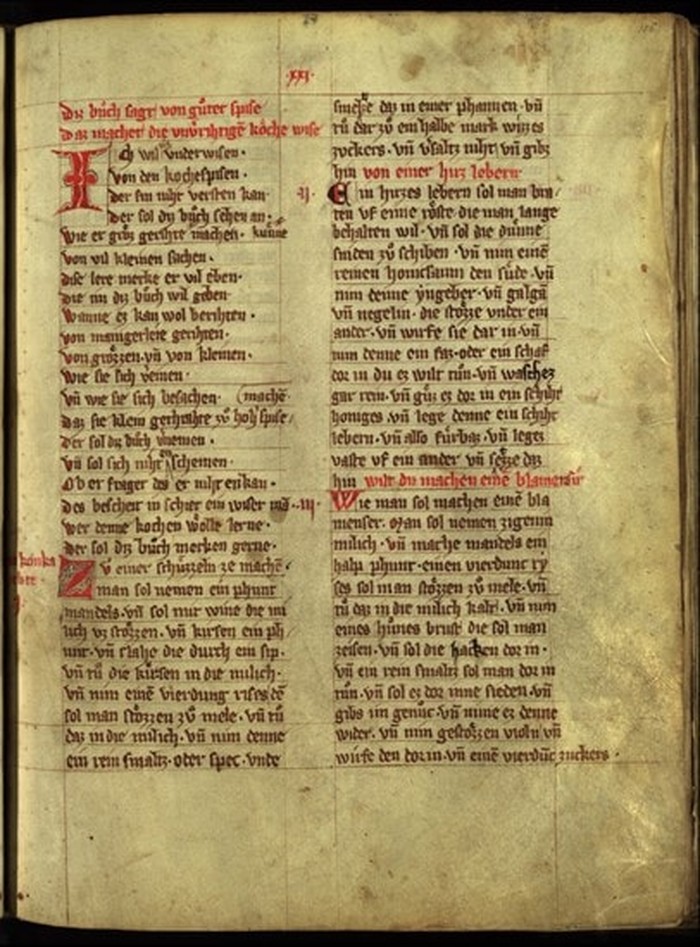 .xxi.
Diz bůch sagt von gůter spise
Daz machet die vnv̓rihtigē kȯche wise
Ich wil vnderwisen.
von den kochespisen.
der sin niht versten kan.
der sol diz bůch sehen an.
wie er groz gerihte machen kunne
von vil kleinen sachen.
dise lere merke er vil eben.
die im diz bůch wil geben
wanne ez kan wol berihten.
von manigerleie gerihten.
von grözzen vn̄ von kleinen.
wie sie sich vereinen.
vn̄ wie sie sich besachen. (machē
daz sie klein gerihte zů hoh spise
der sol diz bůch vernemen.
vn̄ sol sich niht schemen.
Ob er fraget des er niht enkan.
des bescheit in schier ein wiser mā
wer denne kochen wölle lerne.
der sol diz bůch merken gerne.
Zv einer schüzzeln ze machē.
man sol nemen ein phunt
mandels. vn̄ sol mit wine die mi
lich vz stözzen. vn̄ kirsen ein ph
unt. vn̄ slahe die durch ein sip.
vn̄ tů die kirsen in die milich.
vn̄ nim einē vierdung rises dē
sol man stözzen zů mele. vn̄ tů
daz in die milich. vn̄ nim denne
ein rein smaltz. oder spec. vnde
smeltze daz in einer phannen. vn̄
tů dar zů ein halbe mark wizzes
zuckers. vn̄ v̓saltz niht vn̄ gibz
hin von einer hirz lebern
.ij.
Ein hirzes lebern sol man bra
ten vf eime röste die man lange
behalten wil. vn̄ sol die dünne
sniden zů schiben. vn̄ nim einē
reinen honicsaum den süde. vn̄
nim denne yngeber. vn̄ galgā
vn̄ negelin. die stözze vnder ein
ander. vn̄ wirfe sie dar in. vn̄
nim denne ein faz. oder ein schaf
dor in du ez wilt tůn. vn̄ waschez
gar rein. vn̄ güz ez dor in ein schiht
honiges. vn̄ lege denne ein schiht
lebern. vn̄ also fürbaz. vn̄ legez
vaste vf ein ander vn̄ setze daz
hin wilt du machen einē blamensir
.iij.
Wie man sol machen einē bla
menser. Man sol nemen zigenin
milich. vn̄ mache mandels ein
halp phunt. einen vierdunc ry
ses sol man stözzen zů mele. vn̄
tů daz in die milich kalt. vn̄ nim
eines hůnes brust die sol man
zeisen. vn̄ sol die hacken dor in.
vn̄ ein rein smaltz sol man dor in
tůn. vn̄ sol ez dor inne sieden. vn̄
gibs im genůc. vn̄ nime ez denne
wider. vn̄ nim gestözzen violn vn̄
wirfe den dor in. vn̄ einē vierdūc zuckers.